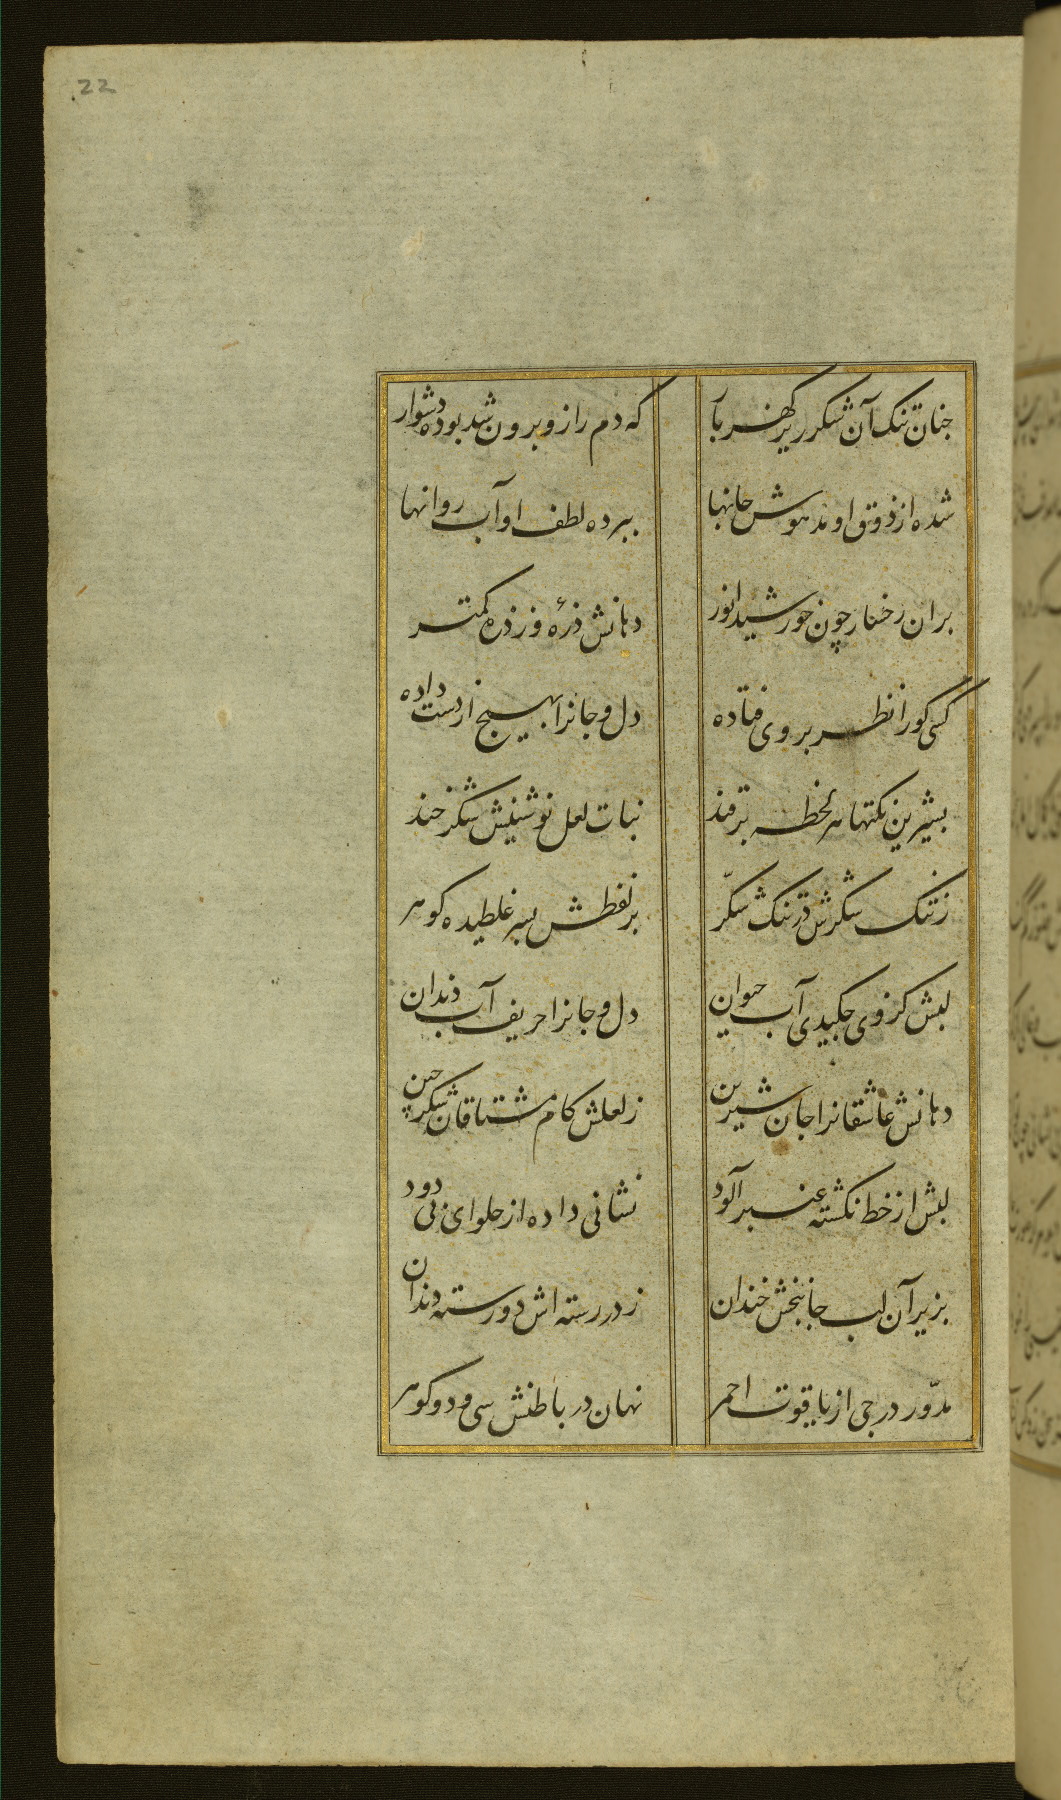 22
چنان تنک آن شکر ریز کهربار که دم را زو برون شد بوده دشوار
شده از ذوق او مدهوش جانها ببرده لطف او آب روانها
بران رخسار چون خورشید انور دهانش ذرهٔ وز ذره کمتر
کسی کورا نظر بروی فتاده دل و جانرا بهیچ از دست داده
بشیرین نکتها هر لحظه ترفند نبات لعل نوشینش شکر خند
ز تنک شکرش در تنک شکّر بر لفظش بسر غلطیده کوهر
لبش کز وی چکیدی آب حیوان دل و جانرا حریف آب دندان
دهانش عاشقانرا جان شیرین ز لعلش کام مشتاقان شکر چین
لبش از خط نکشته عنبر آلود نشانی داده از حلوای بی دود
بزیر آن لب جانبخش خندان ز در رسته اش دو رسته دندان
مدوّر درجی از یاقوت احمر نهان در باطنش سی و دو کوهر